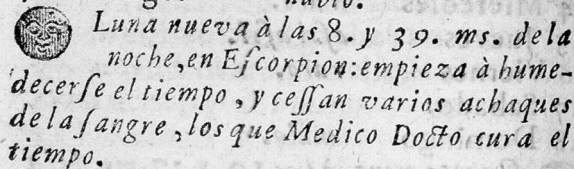 Luna nueva à las 8. y 39. ms. de la
noche, en Eſcorpion: empieza à hume-
decerſe el tiempo, y ceſſan varios achaques
de la ſangre, los que Medico Docto cura el
tiempo.